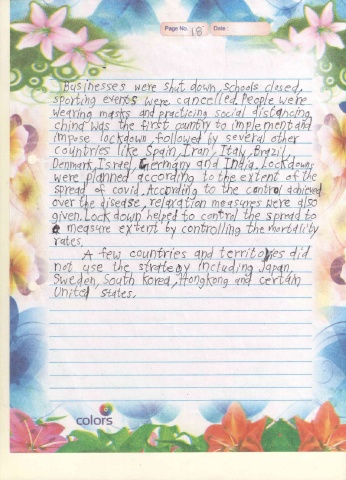 Page No. 18 Date:
Businesses were shut down, schools closed,
sporting events were cancelled. People were
wearing masks and practicing social distancing.
china was the first country to implement and
impose lockdown, followed by several other
countries like Spain, Iran, Italy, Brazil,
Denmark, Israel, Germany and India. Lockdowns
were planned according to the extent of the
spread of covid. According to the control achieved
over the disease, relaxation measures were also
given. Lock down helped to control the spread to
a measure extent by controlling the mortality
rates.
A few countries and territories did
not use the strategy including Japan,
Sweden, South Korea, Hongkong and certain
United states.
colors